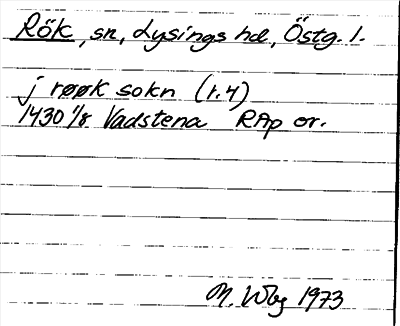 Rök, sn, Lysings hd, Östg. l.
j røøk sokn (r.4)
1430 1/8 Vadstena RAp or.
M. Wbg 1973